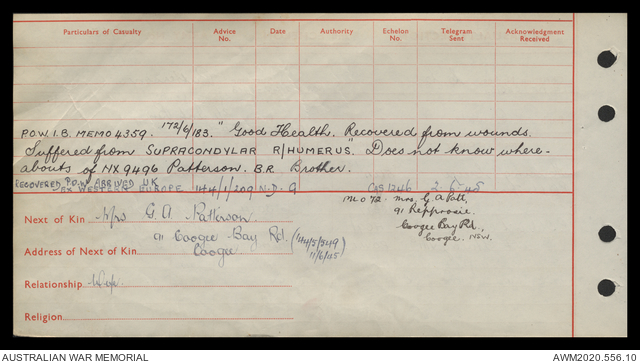 Particulars of Casualty Advice No. Date Authority Echelon No. Telegram Sent Acknowledgment Received
P.O.W. I.B. MEMO 4359. 172/6/183. "Good Health. Recovered from wounds.
Suffered from SUPRACONDYLAR R/HUMERUS". Does not know where-
abouts of NX9496 Patterson. B.R. Brother.
RECOVERED P.O.W. ARRIVED U.K.
EX WESTERN EUROPE 144/1/209 N.D. 9 CAS 1246
Next of Kin Mrs G. A. Patterson
91 Coogee Bay Rd.
Address of Next of Kin Coogee
11/6/45
Mrs. G. A. Patt,
91
Coogee Bay Rd.,
Coogee. NSW.
Relationship
Religion
AUSTRALIAN WAR MEMORIAL AWM2020.556.10